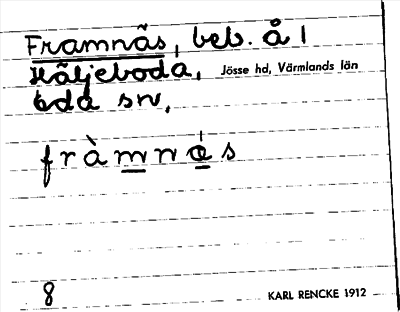 Framnäs, beb. å 1
Häljeboda, Jösse hd, Värmlands län
bda sn,
fràmnás
8
KARL RENCKE 1912